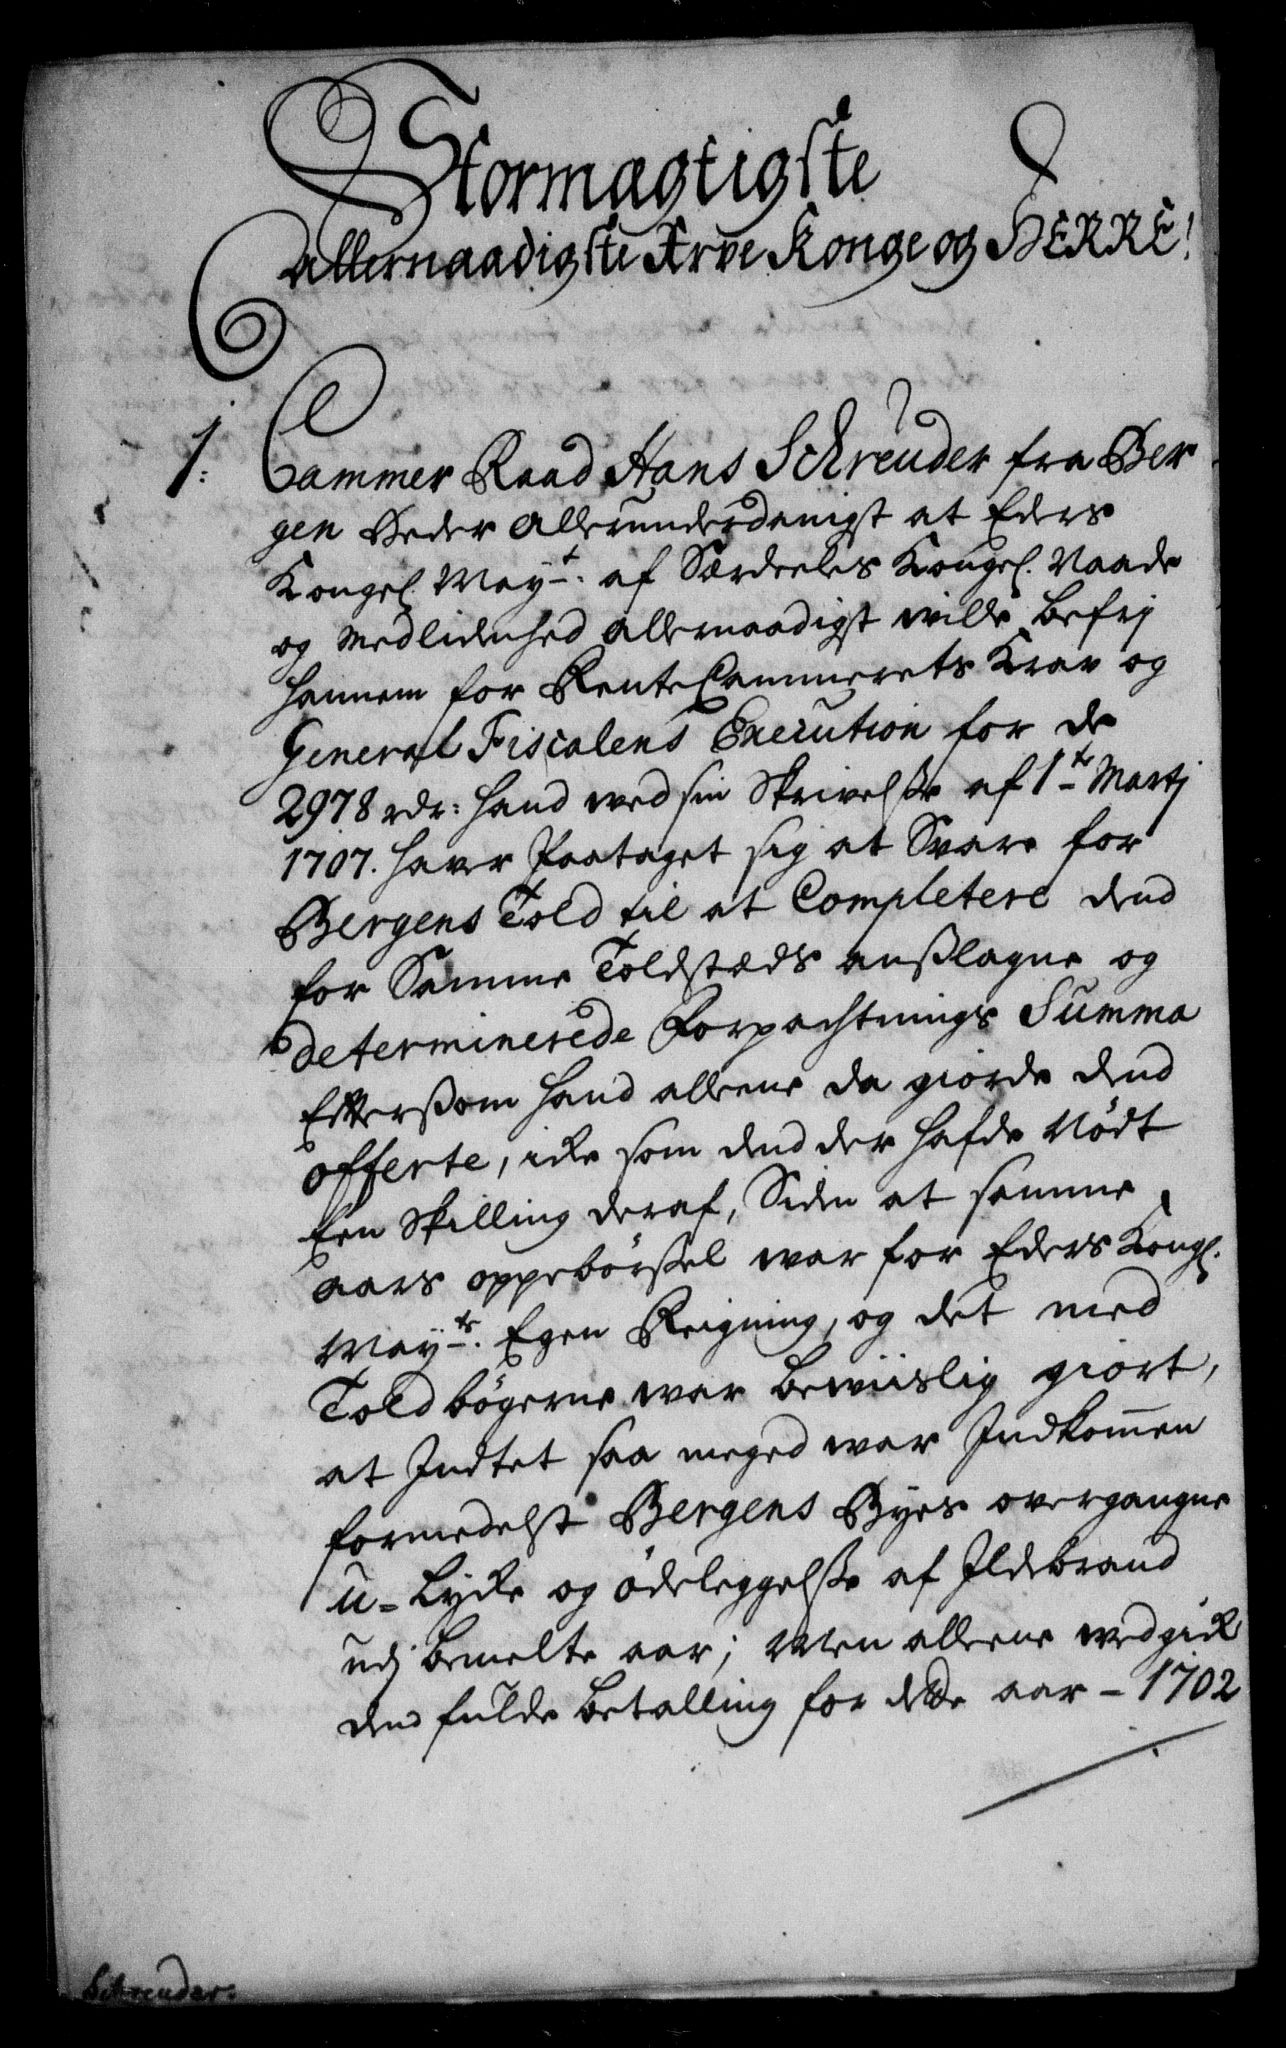 Stormægtigste
Allernaadigste Arve Konge og HERRE!
1: Cammer Raad Hans Schreuder fra Ber
gen Beder allerunderdanigst at Eders
Kongel. Mayt: af Særdeeles Kongel. Naade
og Medlidenhed allernaadigst wille befrj
hannem for RenteCammerets Krav og
General Fiscalens Execution for de
2978 rdr: hand wed sin Skrivelsse af 1te Martj
1707. haver Paataget sig at Svare for
Bergens Told til at Completere dend
for Samme Toldstæds anslagne og
determinerede Forpachtnings Summa
Efterssom hand alleene da giorde dend
offerte, icke som dend der hafde Nødt
Een Skilling deraf, Siden at samme
aars oppebørssel war for Eders Kongl.
Mayts: Egen Reigning, og det med
Toldbøgerne war bewiislig giort,
at Indtet saa meged war Indkom̅en
formedelst Bergens Byes overgangne
u-Lycke og ødeleggelsse af Ildebrand
udj bemelte aar; Men alleene wedgick
dend fulde betalling for dette aar - 1702
Schreuder.